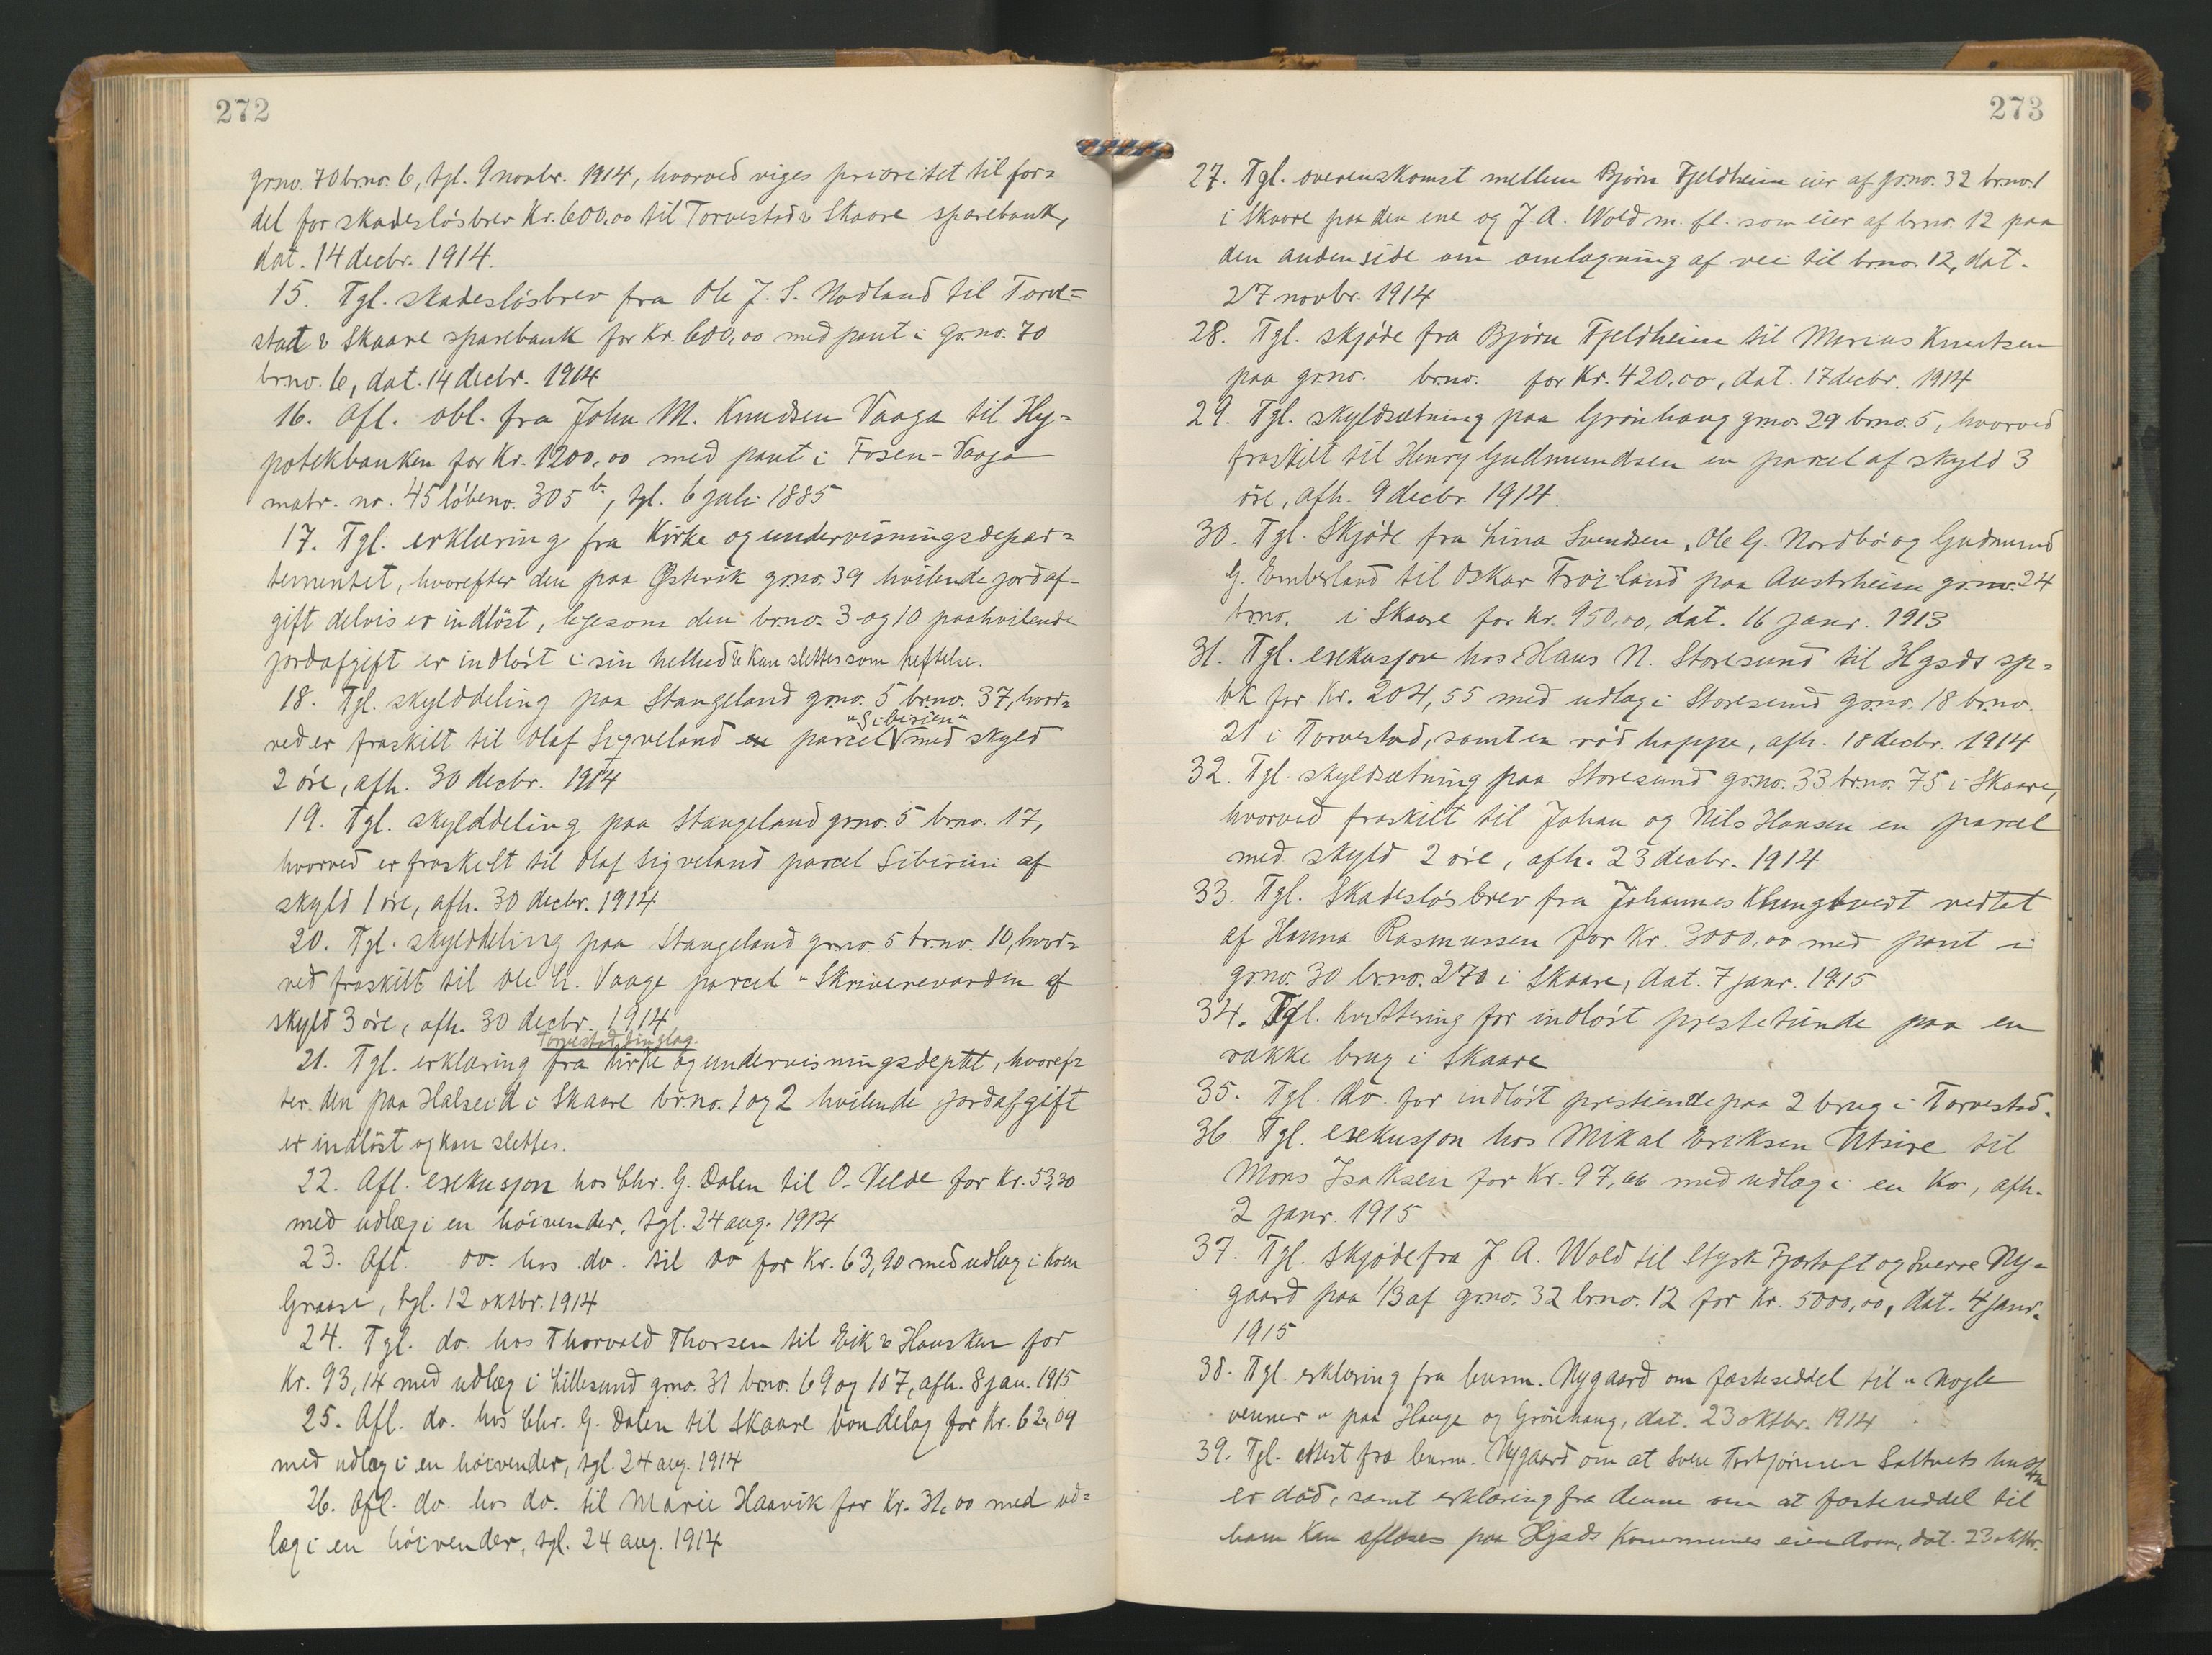 272
grno. 70 brno. 6, tgl. 9 novbr. 1914, hvorved viges prioritet til for=
del for skadesløsbrev Kr. 600,00 til Torvestad & Skaare sparebank,
dat. 14 decbr. 1914.
15. Tgl. skadesløsbrev fra Ole J. S. Nodland til Torve=
stad & Skaare sparebank for Kr. 600,00 med pant i gr.no. 70
br.no. 6, dat. 14 decbr. 1914
16. Afl. obl. fra John M. Knudsen Vaaga til Hy=
potekbanken for Kr. 1200,00 med pant i Fosen-Vaaga
matr. no. 45 løbeno. 305 b, tgl. 6 juli 1885
17. Tgl. erklæring fra Kirke og undervisningsdepar=
tementet, hvorefter den paa Østevik grno. 39 hvilende jordaf-
gift delvis er indløst, ligesom den brno. 3 og 10 paahvilende
jordafgift er indløst i sin helhed & kan slettes som heftelse.
18. Tgl. skylddeling paa Stangeland grno. 5 brno. 37, hvor=
"Sibirien"
ved er fraskilt til Olaf Sigveland en parcel med skyld
2 øre, afh. 30 decbr. 1914
19. Tgl. skylddeling paa Stangeland grno. 5 brno. 17,
hvorved er fraskilt til Olaf Sigveland parcel Sibirien af
skyld 1 øre, afh. 30 decbr. 1914
20. Tgl. skylddeling paa Stangeland grno. 5 br.no. 10, hvor=
ved fraskilt til Ole H. Vaage parcel "Skriverevarden af
skyld 3 øre, afh. 30 decbr. 1914
Torvestad tinglag.
21. Tgl. erklæring fra Kirke og undervisningsdeptet, hvoref=
ter den paa Halseid i Skaare brno. 1 og 2 hvilende jordafgift
er indløst og kan slettes.
22. Afl. exekusjon hos Chr. G. Dalen til O. Velde for Kr. 53,30
med udlæg i en høivender, tgl. 24 aug. 1914
23. Afl. do. hos do. til do for Kr. 63,90 med udlæg i Koen
Graasi, tgl. 12 oktbr. 1914
24. Tgl. do. hos Thorvald Thorsen til Eik & Hausken for
Kr. 93,14 med udlæg i Lillesund grno. 31 brno. 69 og 107, afh. 8 jan. 1915
25. Afl. do. hos Chr. G. Dalen til Skaare bondelag for Kr. 62,09
med udlæg i en høivender, tgl. 24 aug. 1914
26. Afl. do. hos do. til Marie Haavik for Kr. 31,00 med ud=
læg i en høivender, tgl. 24 aug. 1914
273
27. Tgl. overenskomst mellem Bjørn Fjeldheim eier af gr.no. 32 br.no. 1
i Skaare paa den ene og J. A. Wold m. fl. som eier af brno. 12 paa
den anden side om omlægning af vei til brno. 12, dat.
27 novbr. 1914
28. Tgl. skjøde fra Bjørn Fjeldheim til Marius Knutsen
paa gr.no. br.no. for Kr. 420,00, dat. 17 decbr. 1914
29. Tgl. skyldsætning paa Grønhaug grno. 29 brno. 5, hvorved
fraskilt til Henry Gudmundsen en parcel af skyld 3
øre, afh. 9 decbr. 1914.
30. Tgl. Skjøde fra Lina Svendsen, Ole G. Nordbø og Gudmund
G. Emberland til Oskar Frøiland paa Austrheim gr.no. 24
brno. i Skaare for Kr. 950,00, dat. 16 janr. 1913
31. Tgl. exekusjon hos Hans N. Storesund til Hgsds sp=
bk for Kr. 204,55 med udlæg i Storesund gr.no. 18 br.no.
21 i Torvestad, samt en rød hoppe, afh. 18 decbr. 1914
32. Tgl. skyldsætning paa Storesund gr.no. 33 br.no. 75 i Skaare,
hvorved fraskilt til Johan og Nils Hansen en parcel
med skyld 2 øre, afh. 23 decbr. 1914
33. Tgl. Skadesløsbrev fra Johannes Klungtvedt vedtat
af Hanna Rasmussen for Kr. 3000,00 med pant i
gr.no. 30 br.no. 270 i Skaare, dat. 7 janr. 1915
34. Tgl. Kvittering for indløst prestetiende paa en
række brug i Skaare
35. Tgl. do. for indløst prestiende paa 2 brug i Torvestad.
36. Tgl. exekusjon hos Mikal Eriksen Utsire til
Mons Isaksen for Kr. 97,66 med udlæg i en Ko, afh.
2 janr. 1915
37. Tgl. skjøde fra J. A. Wold til Styrk Fjærtoft og Sverre Ny=
gaard paa 1/3 af grno. 32 brno. 12 for Kr. 5000,00, dat. 4 janr.
1915
38. Tgl. erklæring fra lensm. Nygaard om festeseddel til "nogle
venner" paa Hauge og Grønhaug, dat. 23 oktbr. 1914
39. Tgl. Attest fra lensm. Nygaard om at Sven Torbjørnsen Saltveits hustru
er død, samt erklæring fra denne om at festeseddel til
ham kan aflæses paa Hgsds Kommunes eiendom, dat. 23 oktbr.